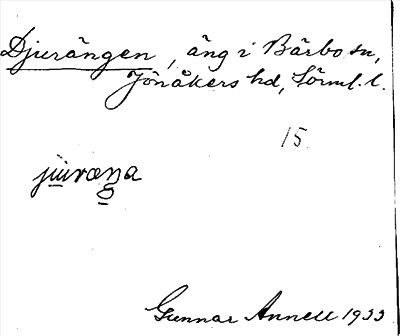 Djurängen, äng i Bärbo sn,
Jönåkers hd, Sörml. l.
15
juvræŋa
Gunnar Annell 1933